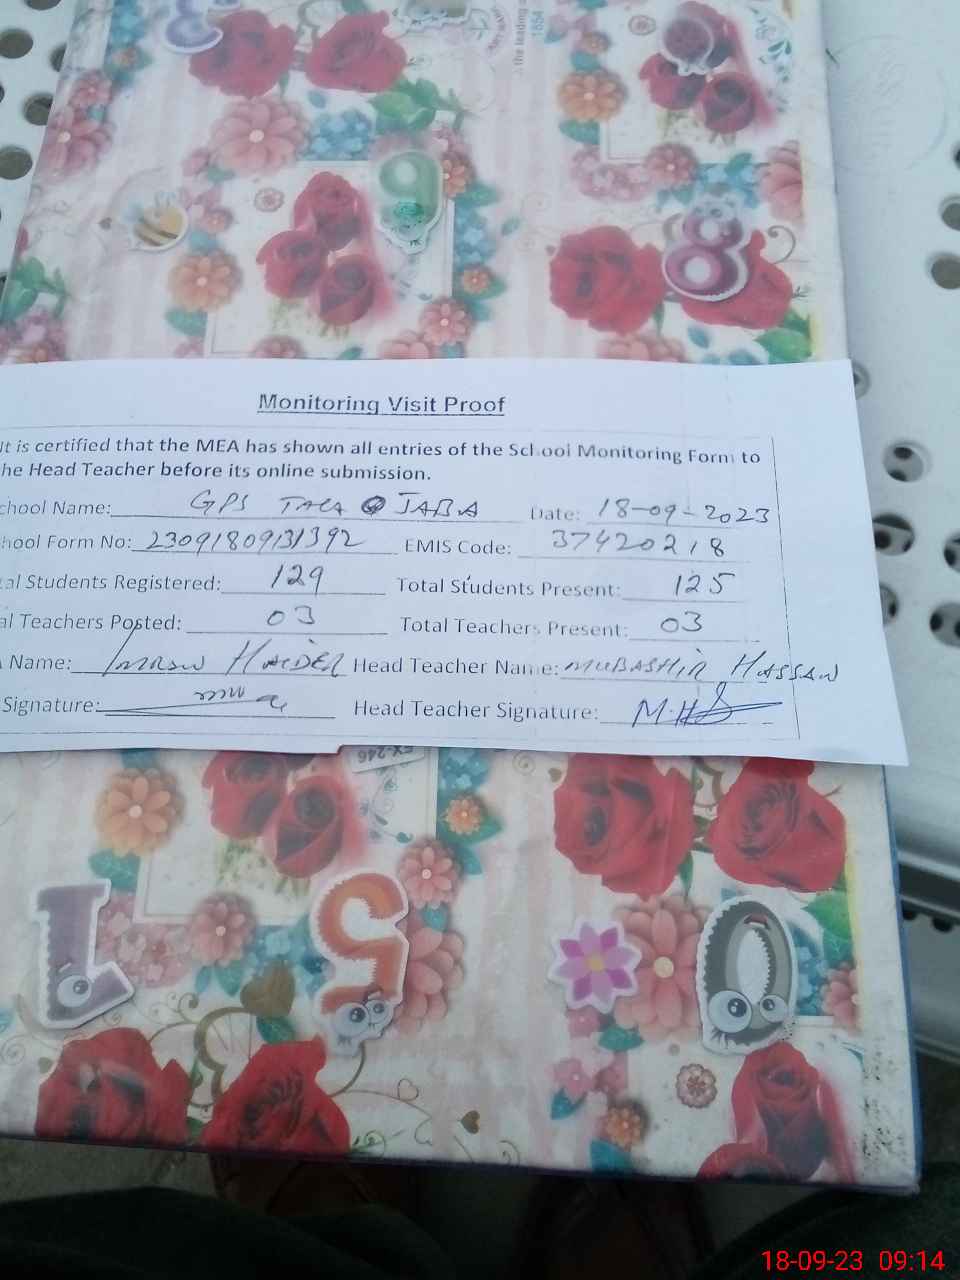 the leading
1854
9
8
Monitoring Visit Proof
It is certified that the MEA has shown all entries of the School Monitoring Form to
he Head Teacher before its online submission.
chool Name: GPS TALA JABA Date: 18-09-2023
hool Form No: 23091809131392 EMIS Code: 37420218
al Students Registered: 129 Total Students Present: 125
al Teachers Posted: 03 Total Teachers Present: 03
Name: IMRAN HAIDER Head Teacher Name: MUBASHIR HASSAN
Signature: Head Teacher Signature: M.H
FX-246
1
5
0
18-09-23 09:14